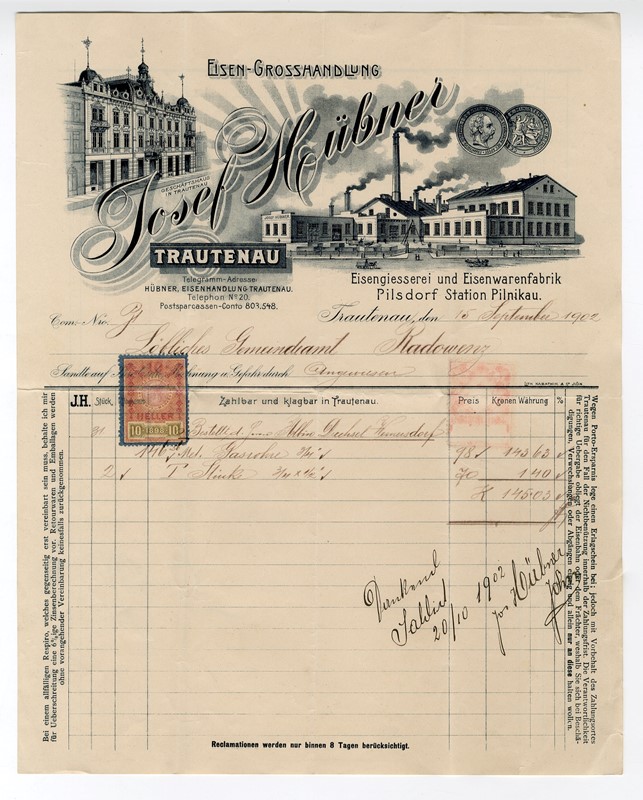 EISEN-GROSSHANDLUNG
Josef Hübner
GESCHÄFTSHAUS
IN TRAUTENAU
JOSEF HÜBNER
TRAUTENAU
Telegramm-Adresse:
HÜBNER, EISENHANDLUNG TRAUTENAU.
Telephon No 20.
Postsparcassen-Conto 803,548.
Eisengiesserei und Eisenwarenfabrik
Pilsdorf Station Pilnikau.
Trautenau, den 15 September 1902
Com.-Nro.
Löbliches Gemeindeamt Radowenz
Sandte auf Rechnung u. Gefahr durch Angewiesen
J.H. Stück, Zahlbar und klagbar in Trautenau. Preis Kronen Währung %
HELLER
10 1898 10
Bestellt d.
146 Met. Gasrohre 98 143 63
2 T Stück 70 1 40
K 145.03
Dankend
20/10 1902
Jos Hübner
Bei einem allfälligen Respiro, welches gegenseitig erst vereinbart sein muss, behalte ich mir
für Ueberschreitung eine 6%ige Zinsenberechnung vor. Retourwaren und Emballagen werden
ohne vorangehender Vereinbarung keinesfalls zurückgenommen.
Wegen Porto-Ersparnis lege einen Erlagschein bei; jedoch mit Vorbehalt des Zahlungsortes
Trautenau für den Fall der Nichtbenützung innerhalb der Zahlungsfrist. Die Verantwortlichkeit
für richtige Uebergabe obliegt der Eisenbahn oder dem Frächter, weshalb Sie sich bei Beschä-
digungen, Verwechslungen oder Abgängen einzig und allein nur an diese halten wollen.
Reclamationen werden nur binnen 8 Tagen berücksichtigt.